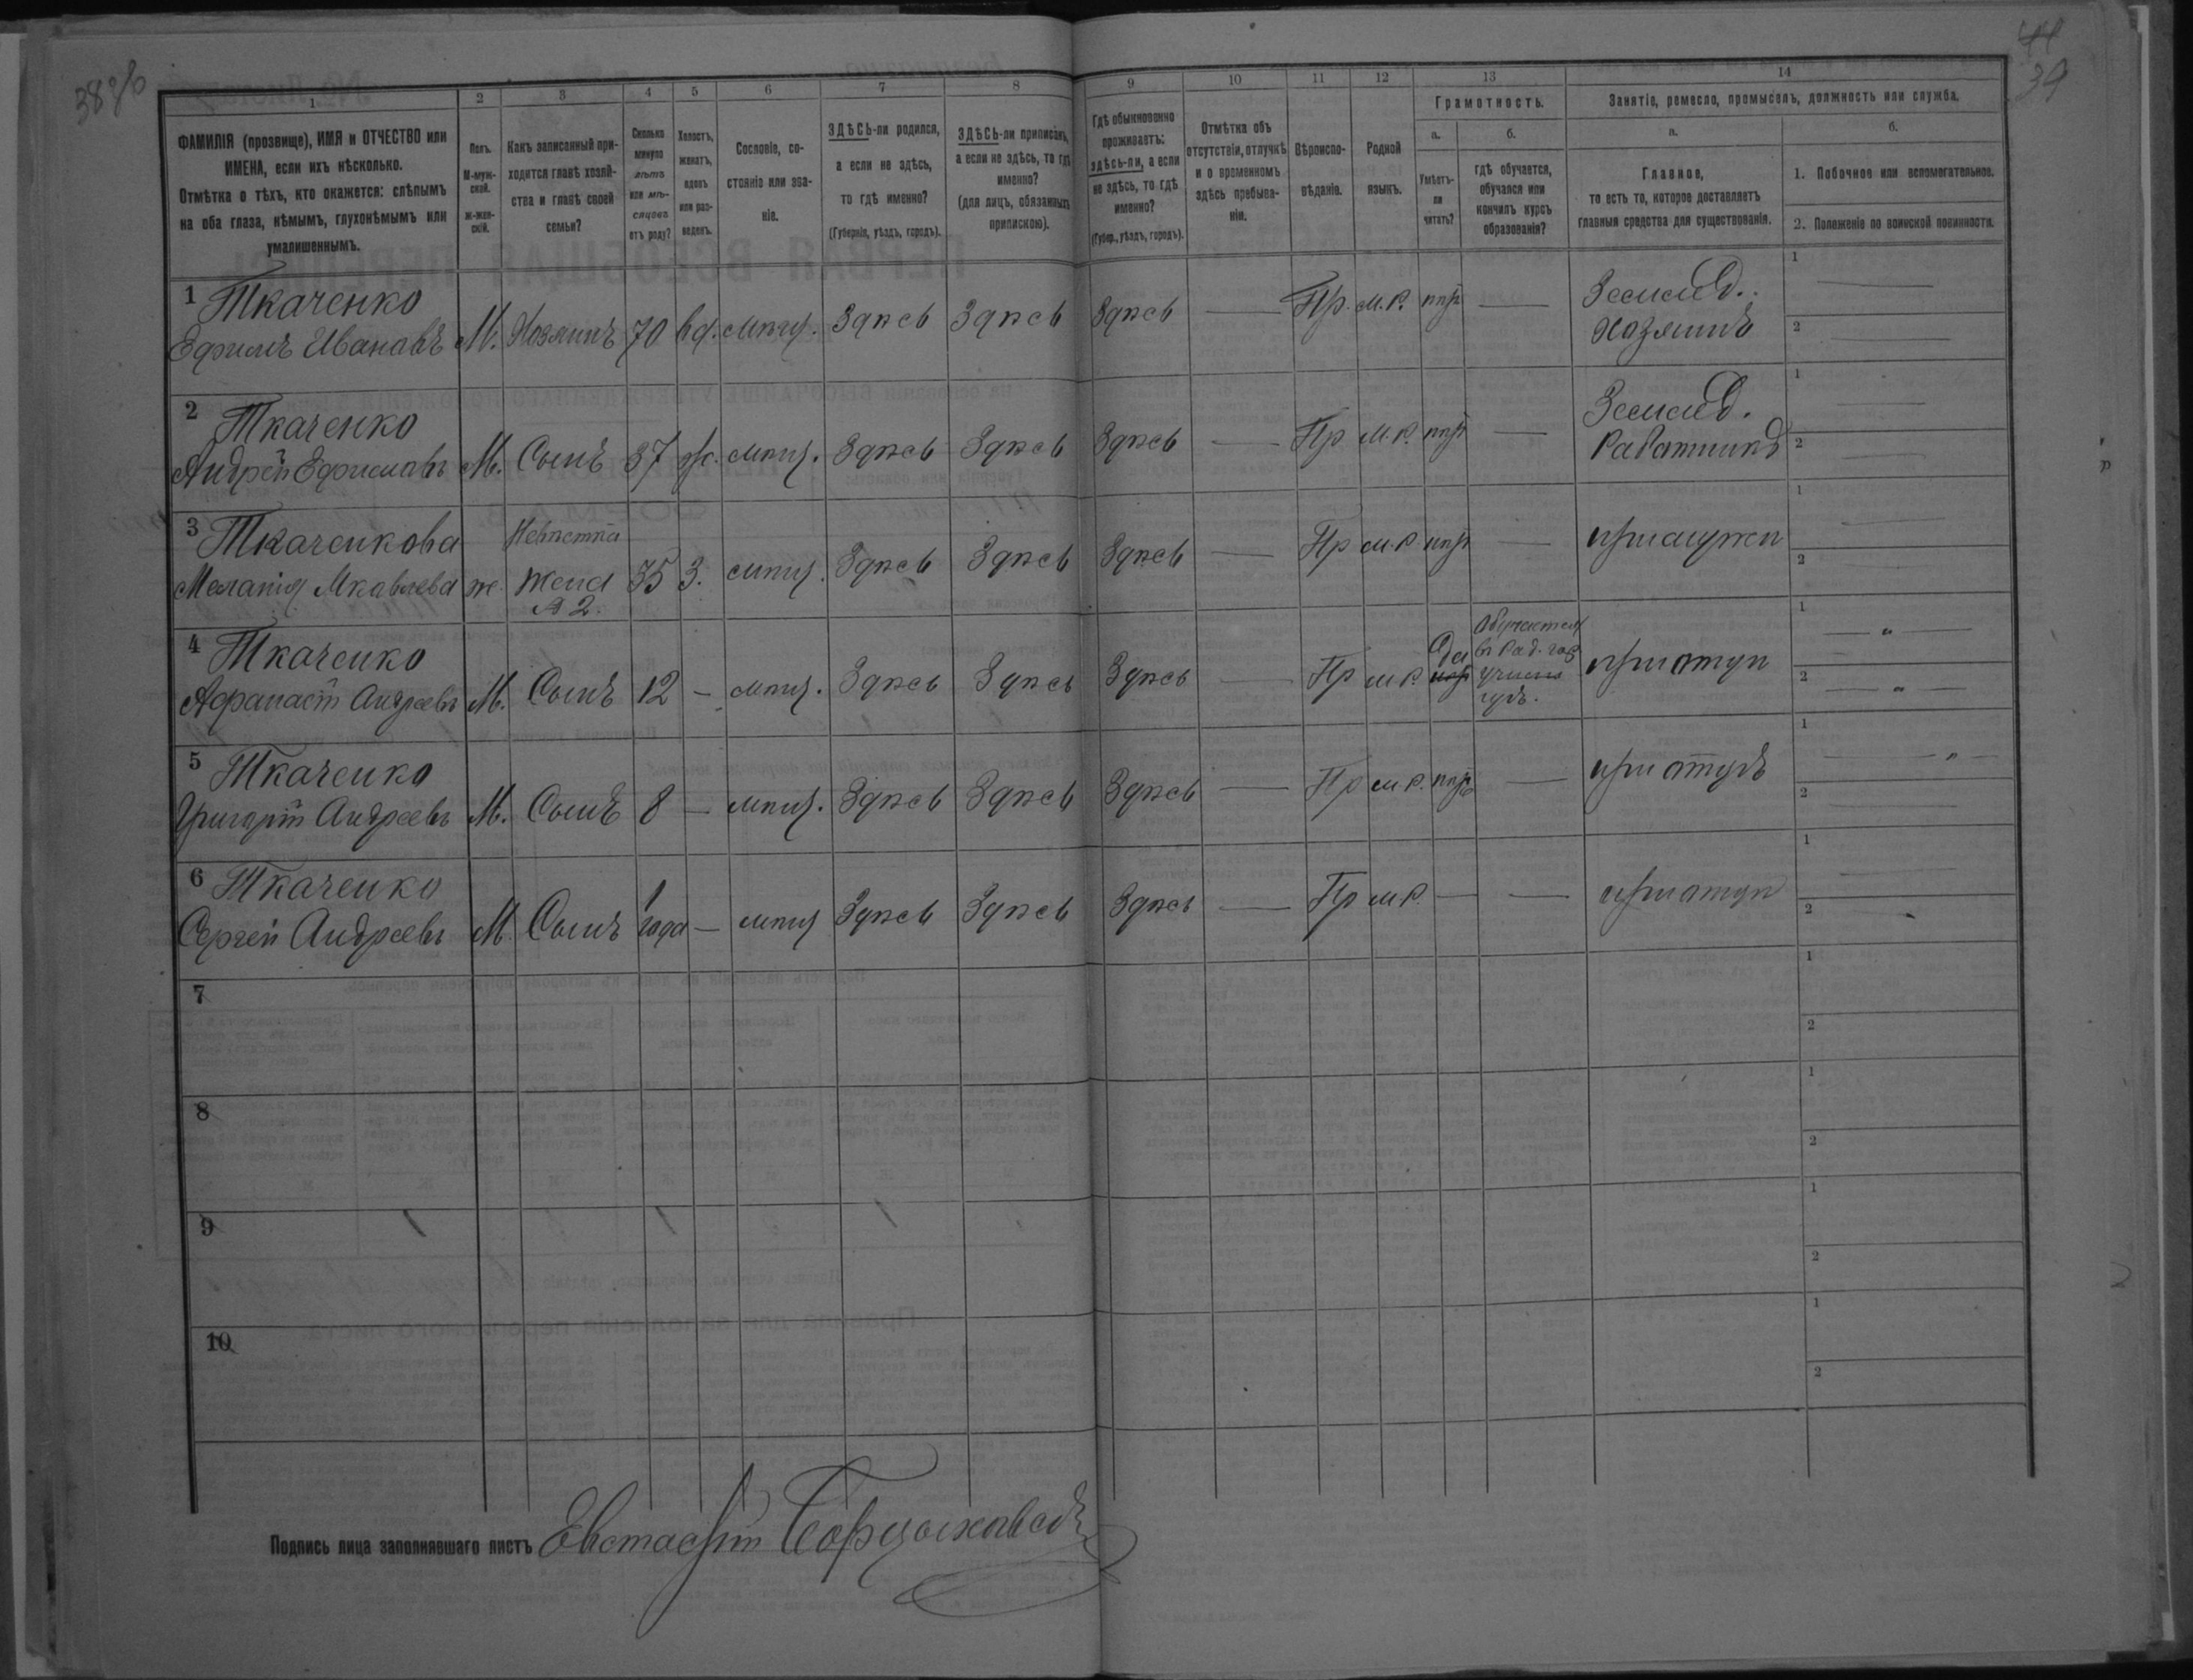 38об
44
39
1 2 3 4 5 6 7 8 9 10 11 12 13 14
ФАМИЛІЯ (прозвище), ИМЯ и ОТЧЕСТВО или
ИМЕНА, если ихъ нѣсколько.
Отмѣтка о тѣхъ, кто окажется: слѣпымъ
на оба глаза, нѣмымъ, глухонѣмымъ или
умалишеннымъ.
Полъ.
М-муж-
ской.
ж-жен-
скій.
Какъ записанный при-
ходится главѣ хозяй-
ства и главѣ своей
семьи?
Сколько
минуло
лѣтъ
или мѣ-
сяцевъ
отъ роду?
Холостъ,
женатъ,
вдовъ
или раз-
веденъ.
Сословіе, со-
стояніе или зва-
ніе.
ЗДѢСЬ-ли родился,
а если не здѣсь,
то гдѣ именно?
(Губернія, уѣздъ, городъ).
ЗДѢСЬ-ли приписанъ,
а если не здѣсь, то гдѣ
именно?
(для лицъ, обязанныхъ
припискою).
Гдѣ обыкновенно
проживаетъ:
здѣсь-ли, а если
не здѣсь, то гдѣ
именно?
(Губер., уѣздъ, городъ).
Отмѣтка объ
отсутствіи, отлучкѣ
и о временномъ
здѣсь пребыва-
ніи.
Вѣроиспо-
вѣданіе.
Родной
языкъ.
Грамотность.
а.
Умѣетъ-
ли
читать?
б.
гдѣ обучается,
обучался или
кончилъ курсъ
образованія?
Занятіе, ремесло, промыселъ, должность или служба.
а.
Главное,
то есть то, которое доставляетъ
главныя средства для существованія.
б.
1. Побочное или вспомогательное.
2. Положеніе по воинской повинности.
1 Ткаченко
Ефимъ Ивановъ М. Хозяинъ 70 вд. мѣщ. Здѣсь Здѣсь Здѣсь — Пр. м.р. — Землед.
Хозяинъ
1 —
2 —
2 Ткаченко
Андрей Ефимовъ М. Сынъ 37 ж. мѣщ. Здѣсь Здѣсь Здѣсь — Пр м.р. — Землед.
Работникъ
1 —
2 —
3 Ткаченкова
Невѣстка
Меланія ж. Жена 35 З. мѣщ. Здѣсь Здѣсь Здѣсь — Пр м.р. —
№ 2.
1 —
2 —
4 Ткаченко
Афанасій Андреевъ М. Сынъ 12 — мѣщ. Здѣсь Здѣсь Здѣсь — Пр м.р. да
Обучается
при отцѣ
1 — " —
2 — " —
5 Ткаченко
Григорій Андреевъ М. Сынъ 8 — мѣщ. Здѣсь Здѣсь Здѣсь — Пр м.р. — при отцѣ
1 — " —
2 —
6 Ткаченко
Сергей Андреевъ М Сынъ 1 года — мѣщ Здѣсь Здѣсь Здѣсь — Пр м.р. — — при отцѣ
1 —
2
7
1
2
8
1
2
9
1
2
10
1
2
Подпись лица заполнявшаго листъ Евстафій